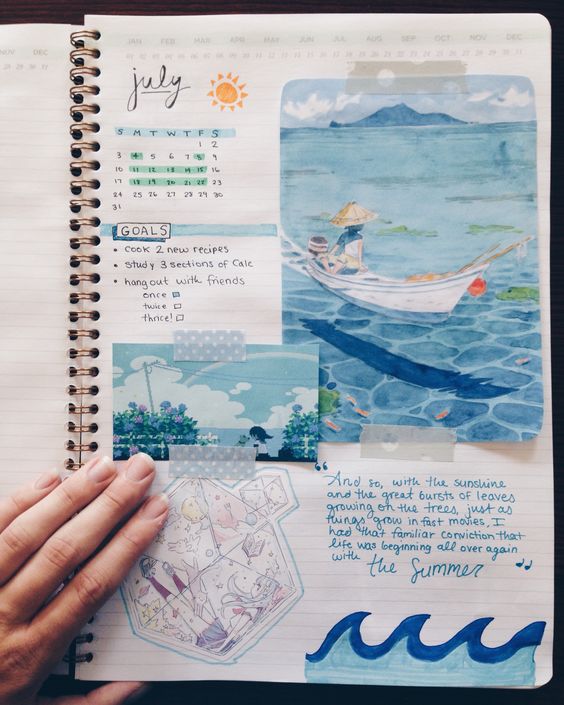 NOV DEC
JAN FEB MAR APR MAY JUN JUL AUG SEP OCT NOV DEC
july
S M T W T F S
1 2
3 4 5 6 7 8 9
10 11 12 13 14 15 16
17 18 19 20 21 22 23
24 25 26 27 28 29 30
31
GOALS
• cook 2 new recipes
• study 3 sections of Calc
• hang out with friends
once
twice
thrice!
"And so, with the sunshine
and the great bursts of leaves
growing on the trees, just as
things grow in fast movies, I
had that familiar conviction that
life was beginning all over again
with the Summer"